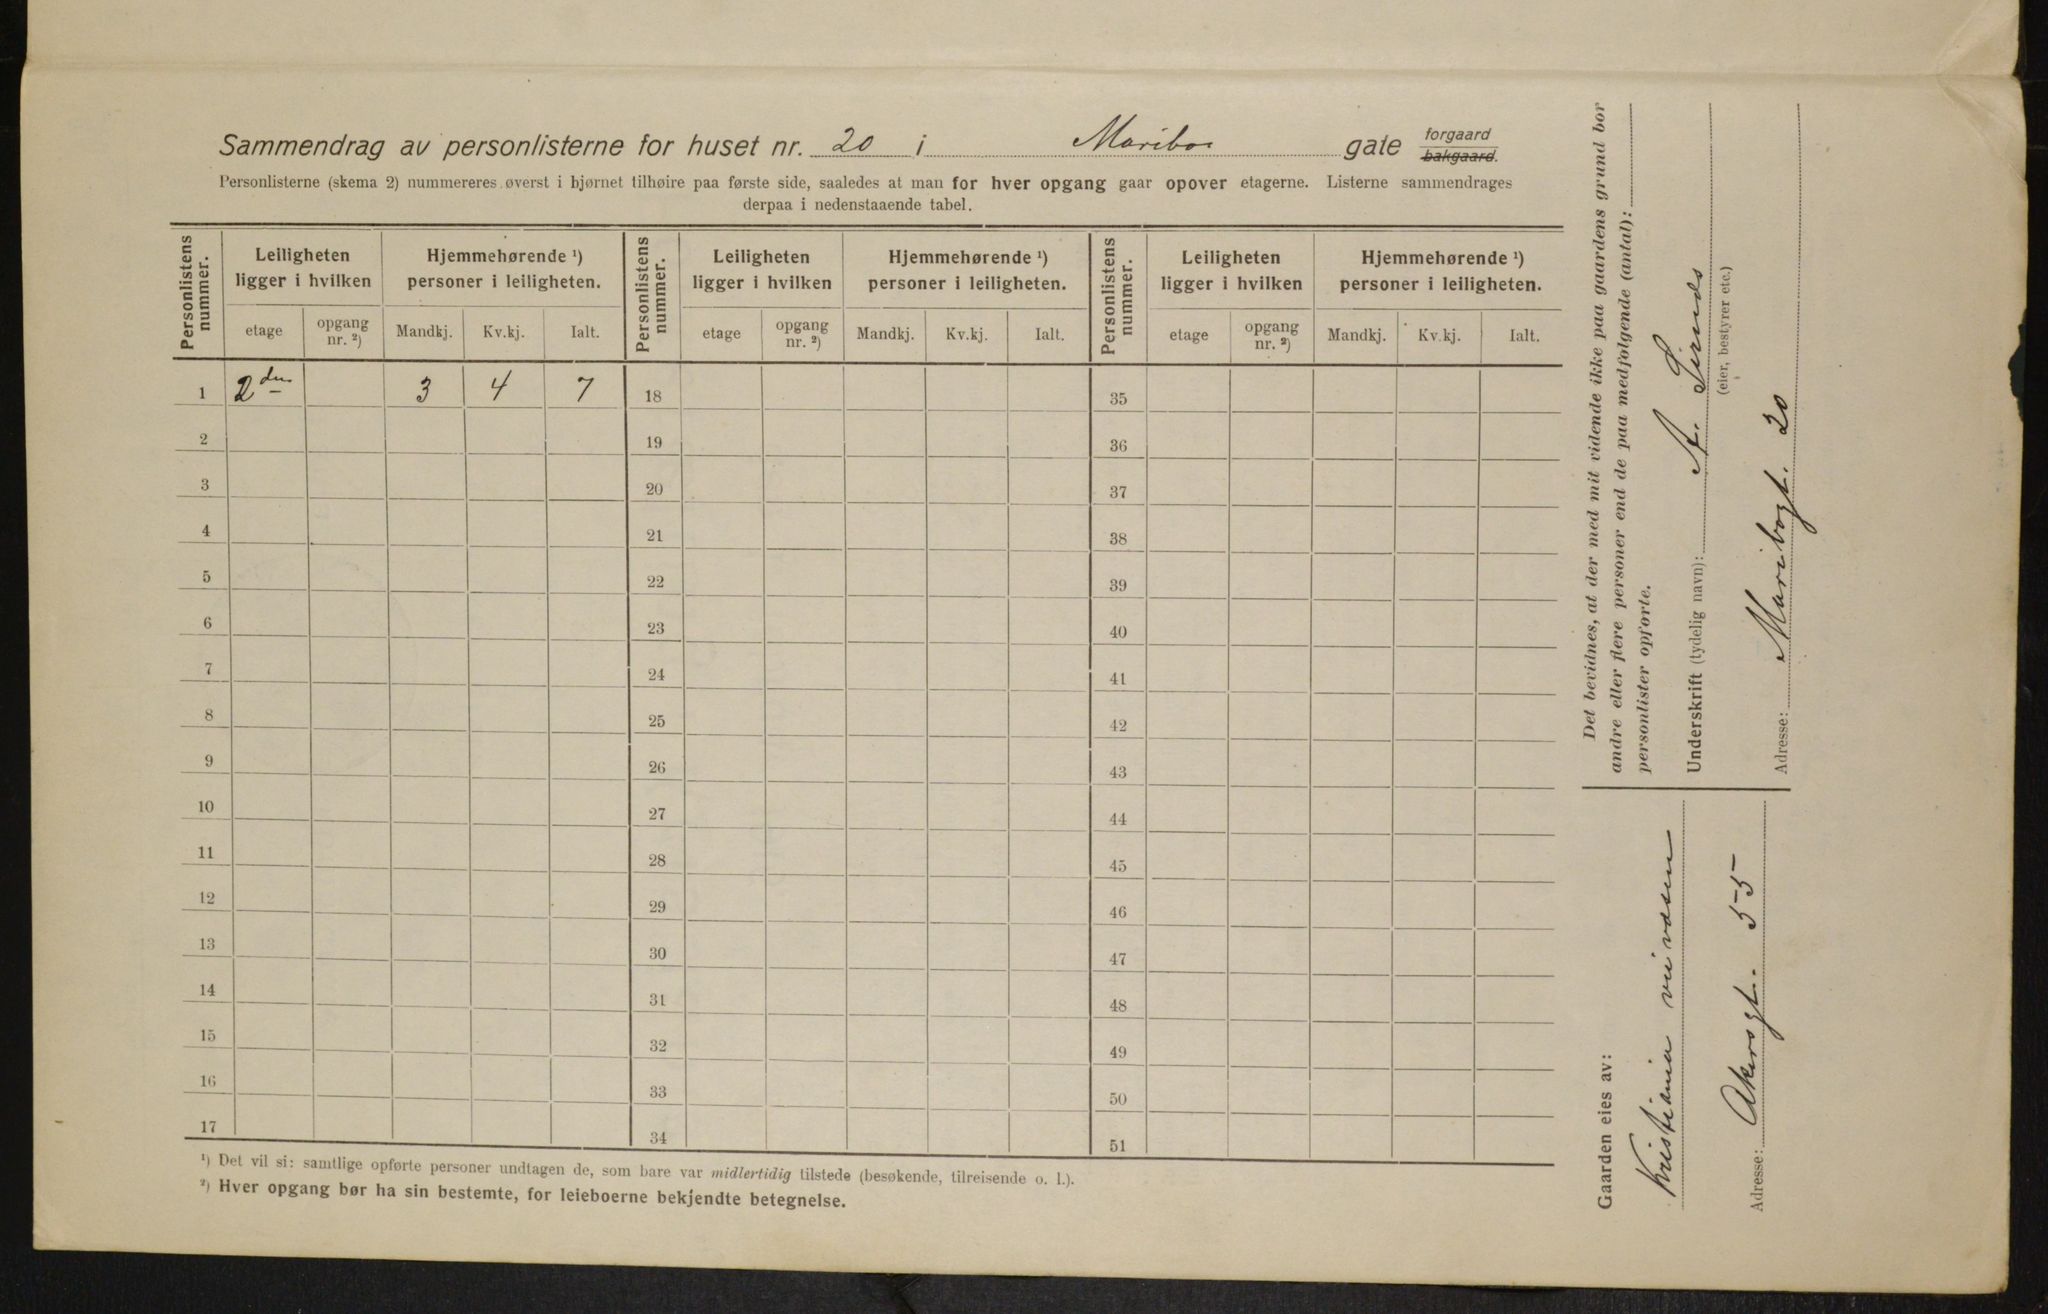 Sammendrag av personlisterne for huset nr. 20 i Maribos gate forgaard bakgaard.
Personlisterne (skema 2) nummereres øverst i hjørnet tilhøire paa første side, saaledes at man for hver opgang gaar opover etagerne. Listerne sammendrages
derpaa i nedenstaaende tabel.
Personlistens nummer. Leiligheten ligger i hvilken Hjemmehørende ¹) personer i leiligheten. Personlistens nummer. Leiligheten ligger i hvilken Hjemmehørende ¹) personer i leiligheten. Personlistens nummer. Leiligheten ligger i hvilken Hjemmehørende ¹) personer i leiligheten.
etage opgang nr. ²) Mandkj. Kv.kj. Ialt. etage opgang nr. ²) Mandkj. Kv.kj. Ialt. etage opgang nr. ²) Mandkj. Kv.kj. Ialt.
1 2den 3 4 7 18 35
2 19 36
3 20 37
4 21 38
5 22 39
6 23 40
7 24 41
8 25 42
9 26 43
10 27 44
11 28 45
12 29 46
13 30 47
14 31 48
15 32 49
16 33 50
17 34 51
¹) Det vil si: samtlige opførte personer undtagen de, som bare var midlertidig tilstede (besøkende, tilreisende o. l.).
²) Hver opgang bør ha sin bestemte, for leieboerne bekjendte betegnelse.
Det bevidnes, at der med mit vidende ikke paa gaardens grund bor
andre eller flere personer end de paa medfølgende (antal):
personlister opførte.
Underskrift (tydelig navn): A.
(eier, bestyrer etc.)
Adresse: Maribogt. 20
Gaarden eies av:
Kristiania veivæsen
Adresse: Akersgt. 55